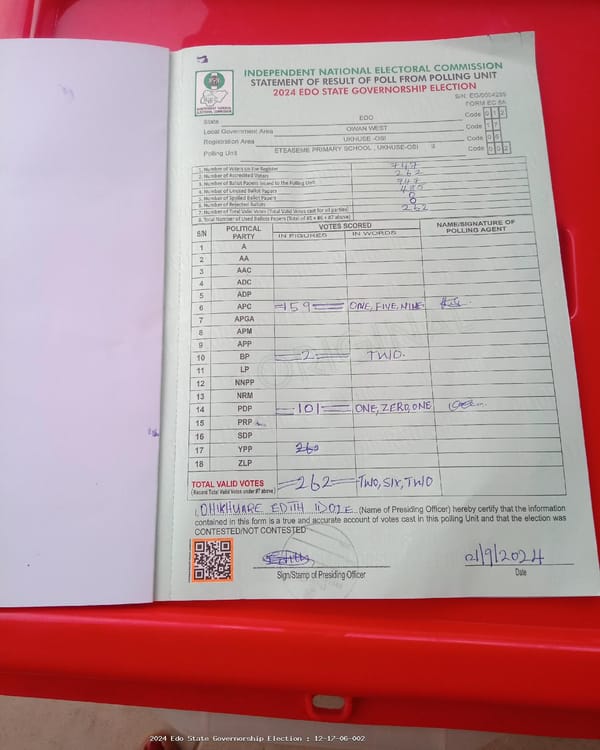 INDEPENDENT NATIONAL ELECTORAL COMMISSION
STATEMENT OF RESULT OF POLL FROM POLLING UNIT
2024 EDO STATE GOVERNORSHIP ELECTION
FORM EC 8A
State EDO Code 0 1 2
Local Government Area OWAN WEST Code 1 7
Registration Area UKHUSE -OSI Code 0 6
Polling Unit ETEASEME PRIMARY SCHOOL , UKHUSE-OSI Code 0 0 2
1. Number of Voters on the Register 747
2. Number of Accredited Voters 262
3. Number of Ballot Papers Issued to the Polling Unit 747
4. Number of Unused Ballot Papers 485
5. Number of Spoiled Ballot Papers 0
6. Number of Rejected Ballots 0
7. Number of Total Valid Votes (Total Valid Votes cast for all parties) 262
8. Total Number of Used Ballot Papers (Total of #5 + #6 + #7 above)
S/N POLITICAL PARTY VOTES SCORED NAME/SIGNATURE OF POLLING AGENT
IN FIGURES IN WORDS
1 A
2 AA
3 AAC
4 ADC
5 ADP
6 APC 159 ONE, FIVE, NINE
7 APGA
8 APM
9 APP
10 BP 2 TWO.
11 LP
12 NNPP
13 NRM
14 PDP 101 ONE, ZERO, ONE
15 PRP
16 SDP
17 YPP 260
18 ZLP
TOTAL VALID VOTES 262 TWO, SIX, TWO
(Record Total Valid Votes under #7 above)
I, OHIKHUARE EDITH IDOZE (Name of Presiding Officer) hereby certify that the information
contained in this form is a true and accurate account of votes cast in this polling Unit and that the election was
CONTESTED/NOT CONTESTED
Sign/Stamp of Presiding Officer
Date
2024 Edo State Governorship Election : 12-17-06-002